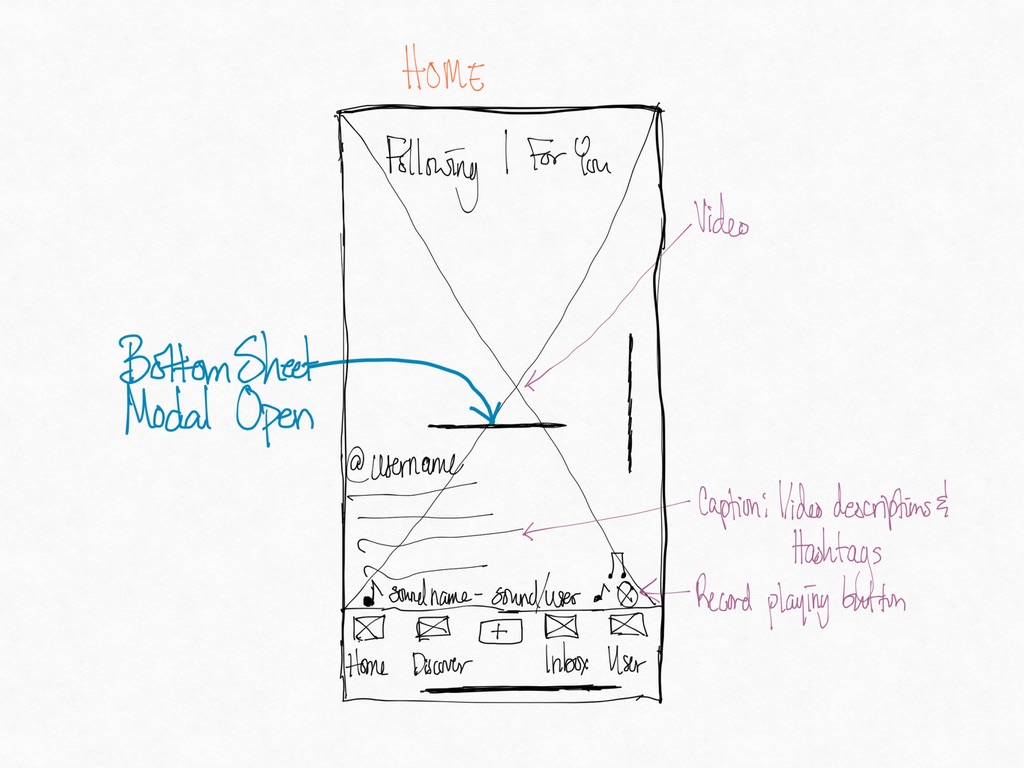 HOME
Following | For You
Video
Bottom Sheet
Modal Open
@username
Caption: Video descriptions &
Hashtags
sound name - sound/user
Record playing button
Home Discover + Inbox User